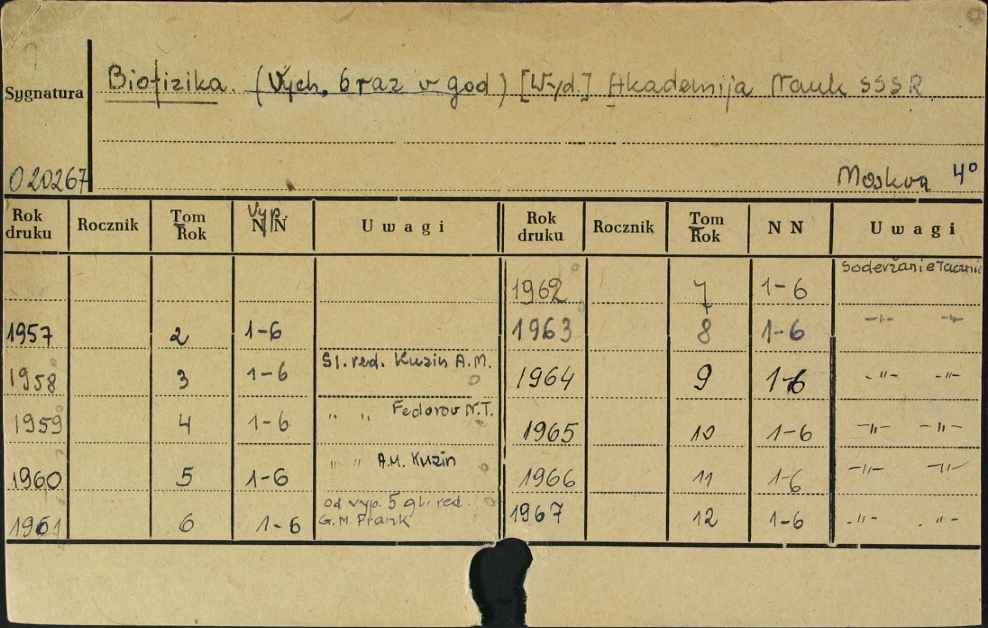 Biofizika. (Vych. 6 raz v god) [Wyd.] Akademija Nauk SSSR
Sygnatura
020267
Moskva 4°
Rok druku Rocznik Tom Rok Vyp. N N Uwagi Rok druku Rocznik Tom Rok N N Uwagi
1962 7 1-6 Soderžanie
1957 2 1-6 1963 8 1-6 -"- -"-
1958 3 1-6 Gl. red. Kuzin A.M. 1964 9 1-6 -"- -"-
1959 4 1-6 " " Fedorov N.T. 1965 10 1-6 -"- -"-
1960 5 1-6 " " A.M. Kuzin 1966 11 1-6 -"- -"-
1961 6 1-6 od vyp. 5 gl. red. G.M. Frank 1967 12 1-6 -"- -"-